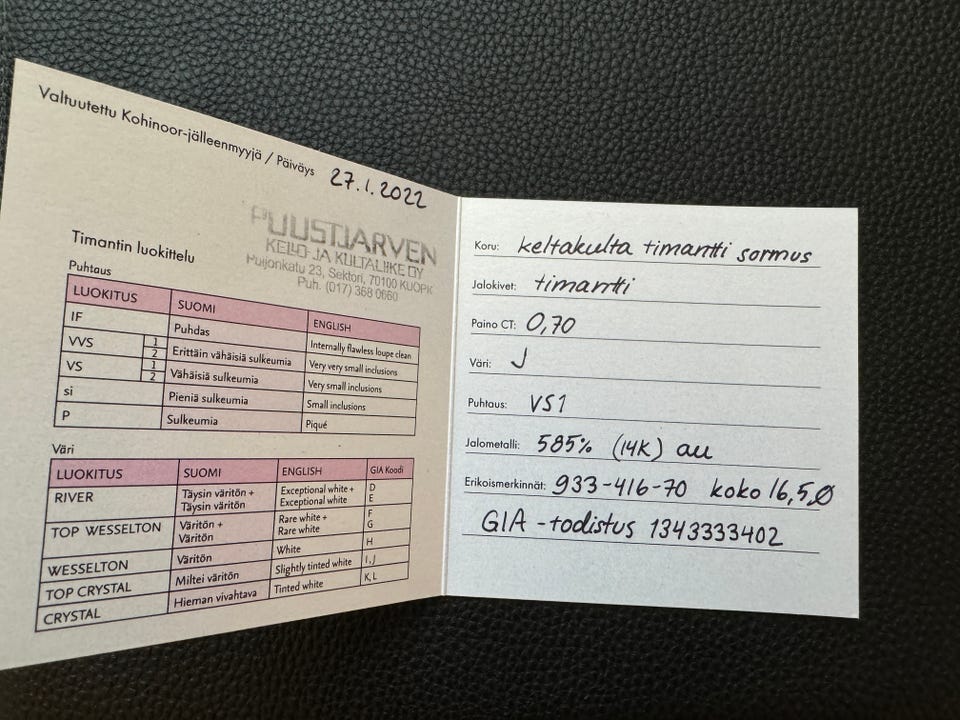 Valtuutettu Kohinoor-jälleenmyyjä / Päiväys 27.1.2022
PUUSTJÄRVEN
KELLO- JA KULTALIIKE OY
Puijonkatu 23, Sektori, 70100 KUOPIO
Puh. (017) 368 0660
Timantin luokittelu
Puhtaus
LUOKITUS SUOMI ENGLISH
IF Puhdas Internally flawless loupe clean
VVS 1 2 Erittäin vähäisiä sulkeumia Very very small inclusions
VS 1 2 Vähäisiä sulkeumia Very small inclusions
si Pieniä sulkeumia Small inclusions
P Sulkeumia Piqué
Väri
LUOKITUS SUOMI ENGLISH GIA Koodi
RIVER Täysin väritön + Exceptional white + D
Täysin väritön Exceptional white E
TOP WESSELTON Väritön + Rare white + F
Väritön Rare white G
WESSELTON Väritön White H
TOP CRYSTAL Miltei väritön Slightly tinted white I, J
CRYSTAL Hieman vivahtava Tinted white K, L
Koru: keltakulta timantti sormus
Jalokivet: timantti
Paino CT: 0,70
Väri: J
Puhtaus: VS1
Jalometalli: 585% (14K) au
Erikoismerkinnät: 933-416-70 koko 16,5 Ø
GIA -todistus 1343333402